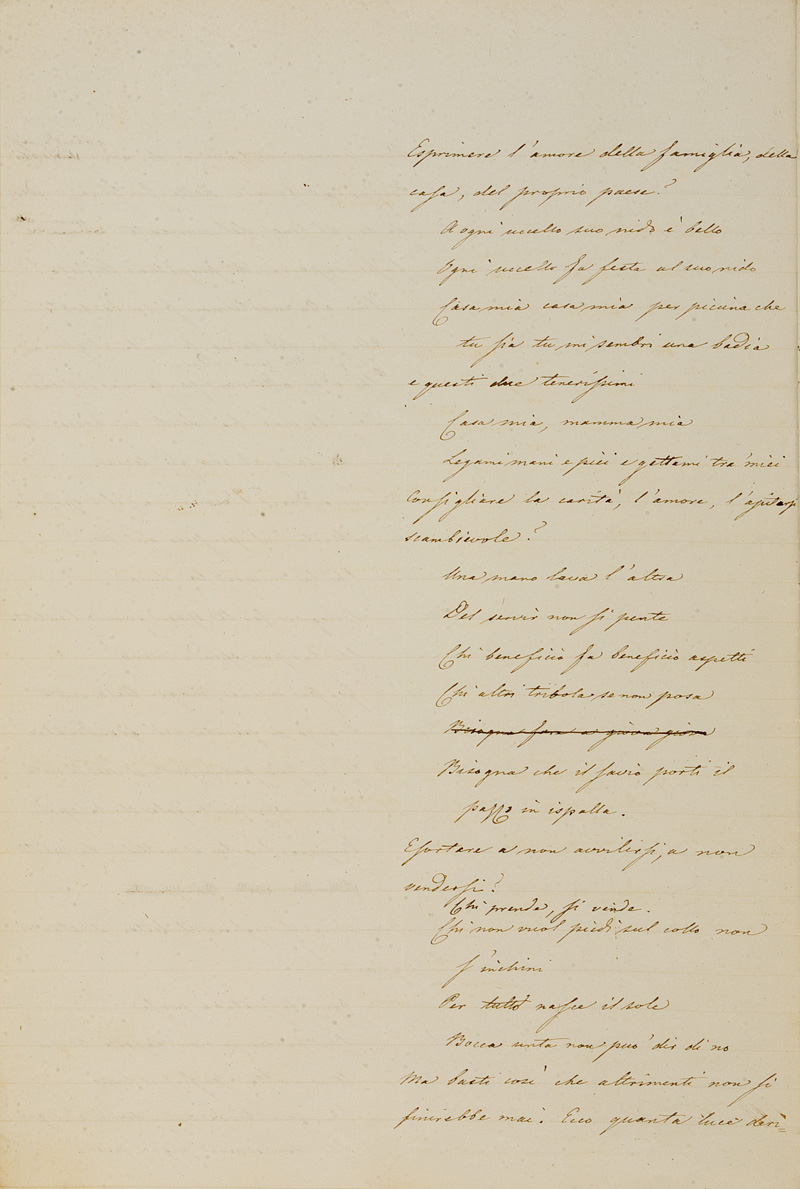 Esprimere l'amore della famiglia, della
casa, del proprio paese?
A ogni uccello suo nido è bello
Ogni uccello fa festa al suo nido
Casa mia casa mia per piccina che
tu sia tu mi sembri una badia
e questi due tenerissimi
Casa mia, mamma mia
Legami mani e piei e gettami tra' miei
Consigliare la carità, l'amore, l'ajutarsi
scambievole?
Una mano lava l'altra
Del servir non si pente
Chi beneficio fa beneficio aspetti
Chi altri tribola se non posa
Bisogna fare a giova giova
Bisogna che il savio porti il
pazzo in ispalla.
Esortare a non avvilirsi, a non
vendersi?
Chi prende, si vende.
Chi non vuol piedi sul collo non
s'inchini
Per tutto nasce il sole
Bocca unta non può dir di no
Ma basti così che altrimenti non si
finirebbe mai. Ecco quanta luce deri=